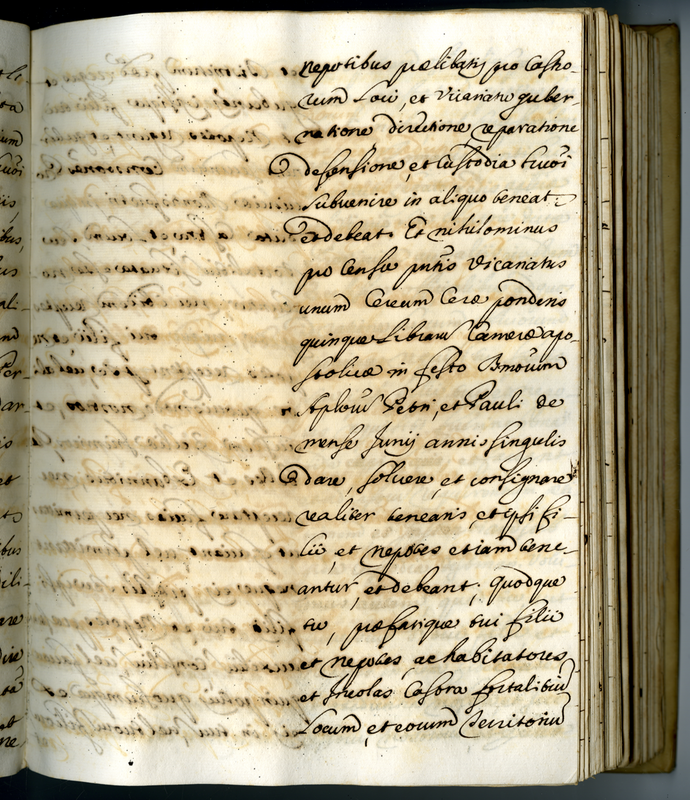 nepotibus prælibatis pro Castro-
rum Loci, et Vicariatu guber-
natione directione reparatione
defensione et custodia tuoȓ
subvenire in aliquo teneat
et debeat. Et nihilominus
pro Censu pntis Vicariatus
unum Cereum Ceræ ponderis
quinque Librarū Cameræ apo-
stolicæ in festo Bmorum
Aplorū Petri, et Pauli de
mense Junij annis singulis
dare, solvere, et consignare
realiter tenearis, et ipsi fi-
lii, et nepotes etiam tene-
antur, et debeant; quodque
tu, præfatique tui filii
et nepotes, ac habitatores,
et Incolas Castra fortalitiū
Locum, et eorum Territoriū